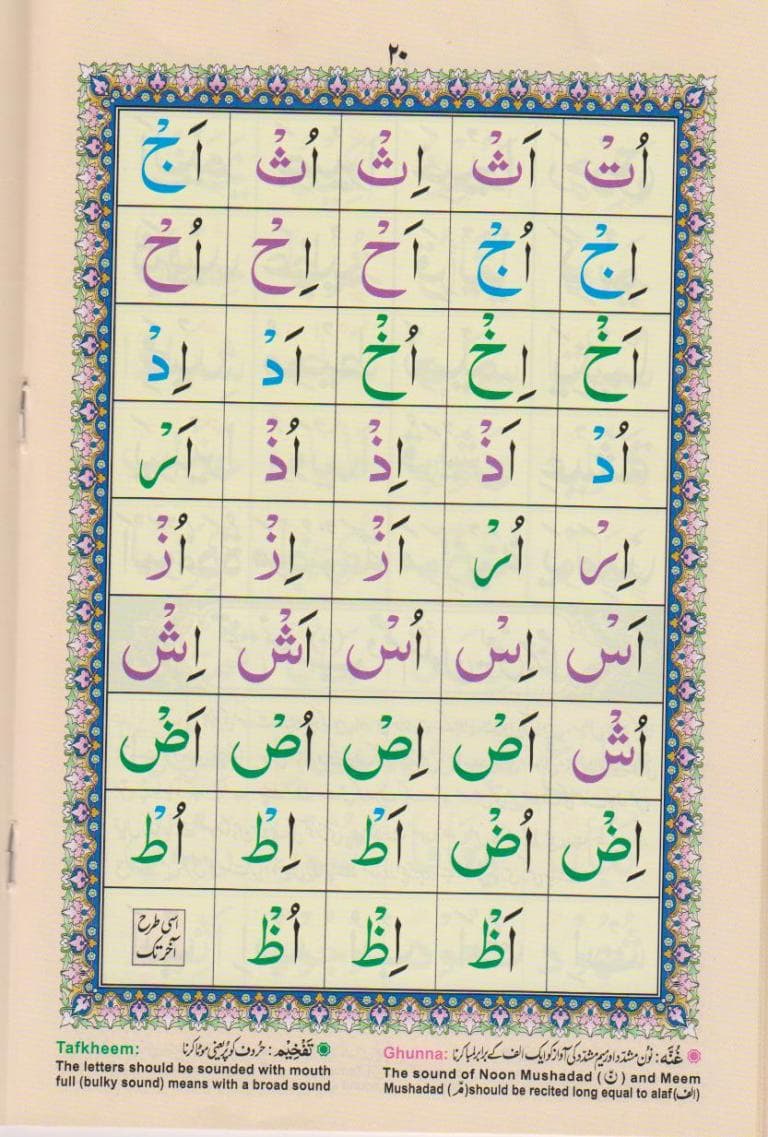 ٢٠
اُتْ اَثْ اِثْ اُثْ اَجْ
اِجْ اُجْ اَحْ اِحْ اُحْ
اَخْ اِخْ اُخْ اَدْ اِدْ
اُدْ اَذْ اِذْ اُذْ اَرْ
اِرْ اُرْ اَزْ اِزْ اُزْ
اَسْ اِسْ اُسْ اَشْ اِشْ
اُشْ اَصْ اِصْ اُصْ اَضْ
اِضْ اُضْ اَطْ اِطْ اُطْ
اَظْ اِظْ اُظْ
اسی طرح
آخر تک
غُنَّه: نون مشدد اور میم مشدد کی آواز کو ایک الف کے برابر لمبا کرنا
Ghunna:
The sound of Noon Mushadad (نّ) and Meem
Mushadad (مّ) should be recited long equal to alaf (الف)
تَفْخِيْم: حروف کو پُر یعنی موٹا کرنا
Tafkheem:
The letters should be sounded with mouth
full (bulky sound) means with a broad sound